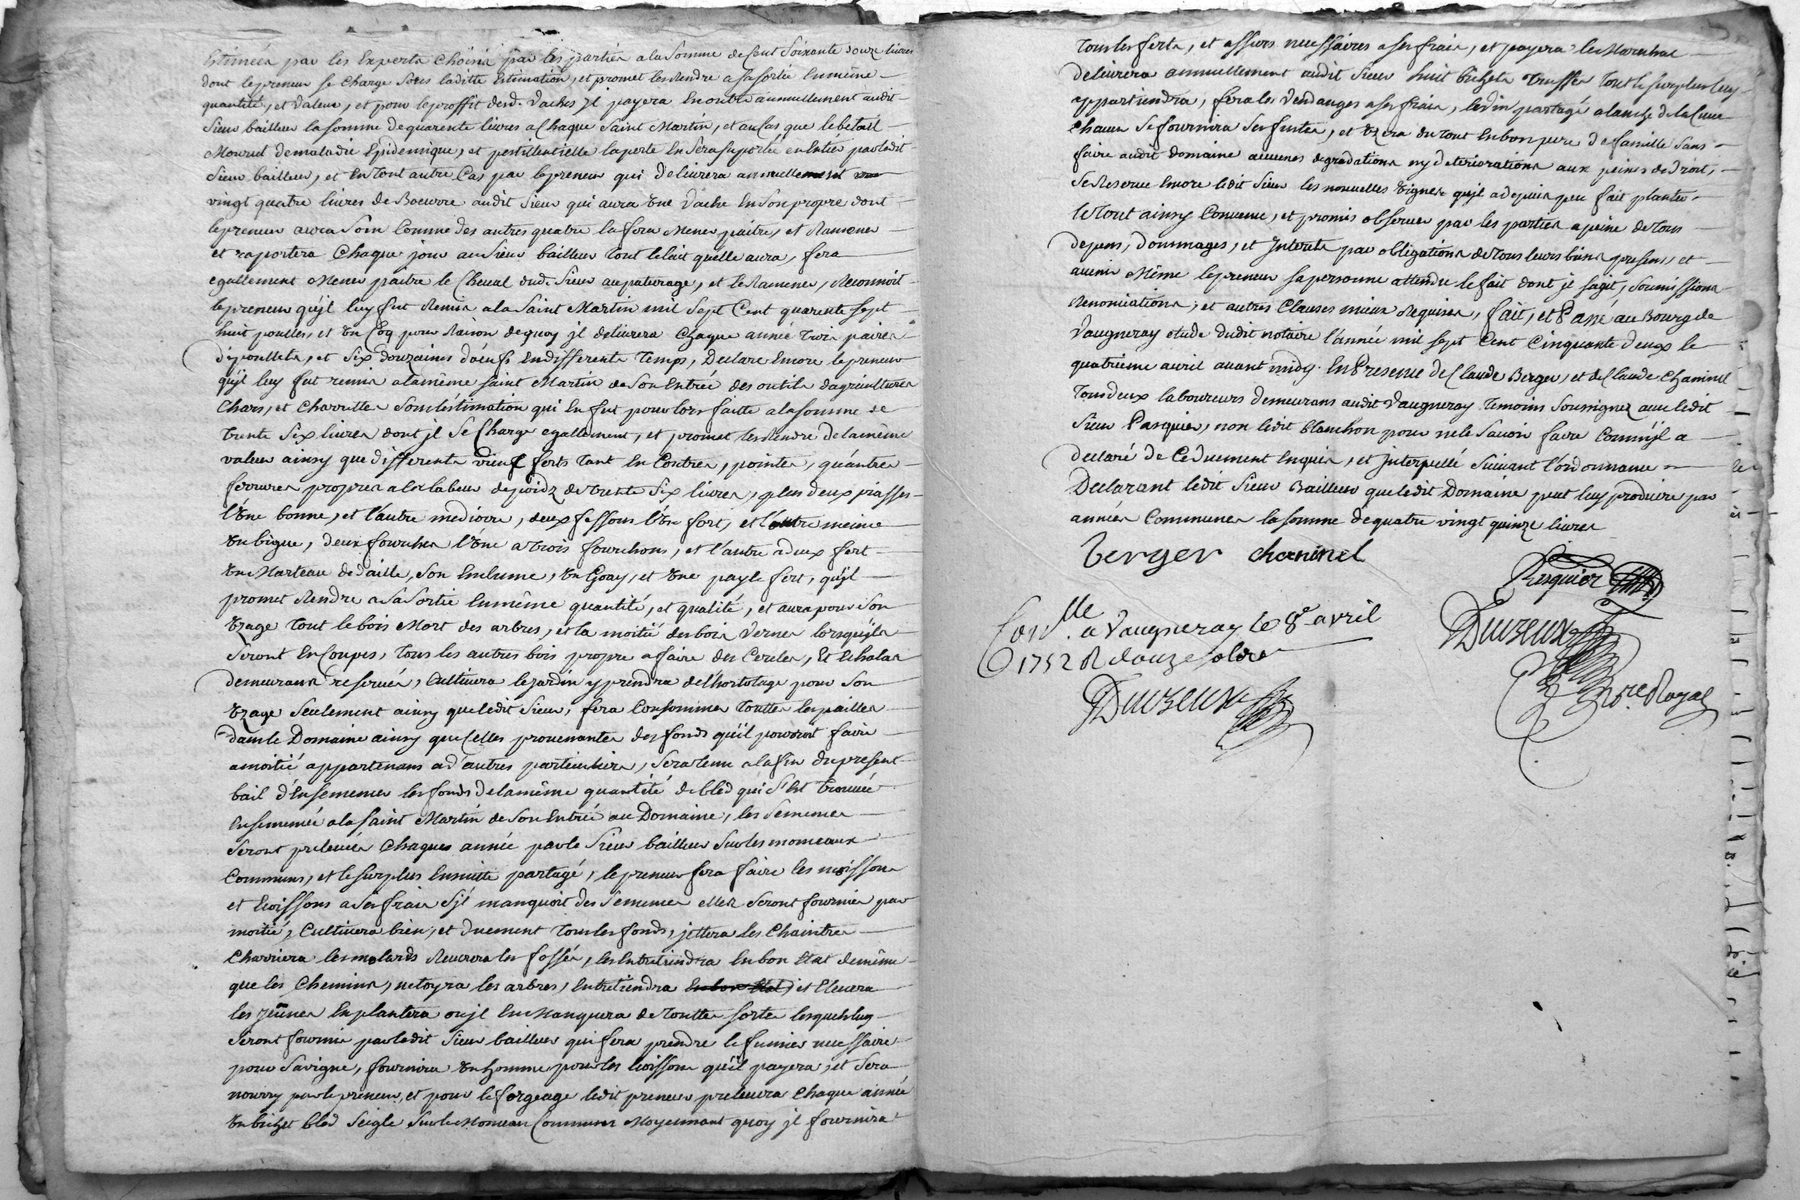 Estimées par les Experts choisis par les parties a la somme de Cent Soixante douze livres
dont le preneur se charge Sous laditte Estimation, et promet les Rendre a sa sortie En même
quantité, et valeur, et pour le proffit desd. vaches jl payera En outre annuellement audit
Sieur bailleur la somme de quarente livres a Chaque Saint Martin, et au Cas que le betail
Mourut de maladie Epidemique, et pestillentielle la perte En sera suportée en Entier par ledit
Sieur bailleur, et En tout autre Cas par le preneur qui delivrera annuellement
vingt quatre livres de Boeurre audit Sieur qui aura Une vache En son propre dont
le preneur aura Soin Comme des autres quatre la fera Mener paitre, et Ramener
et raportera Chaque jour au Sieur bailleur tout le lait quelle aura, fera
egallement Mener paitre le Cheval dud. Sieur au paturage, et le Ramener, Reconnoit
le preneur qu'jl luy fut Remis a la Saint Martin mil Sept Cent quarente Sept
huit poulles, et Un Coq pour Raison de quoy jl delivrera Chaque année trois paires
de poullets, et Six douzaines d'oeufs En differents temps, Declare Encore le preneur
qu'jl luy fut remis a la même Saint Martin de Son Entrée des outils d'agriculture
Chars, et Charrette Sous l'estimation qui En fut pour lors faitte a la somme de
trente Six livres dont jl Se Charge egallement, et promet les Rendre de la même
valeur ainsy que differents vieux ferts tant En Contres, pointes, qu'autres
ferrures propres a la labeur de poidz de trente Six livres, plus deux piasses
l'Une bonne, et l'autre mediocre, deux fessous l'Un fort, et l'autre meme
En bigue, deux fourches l'Une a trois fourchons, et l'autre a deux fert
Un Marteau de daille, Son Enclume, Un Goay, et Une payle fert, qu'jl
promet Rendre a Sa Sortie En même quantité, et qualité, et aura pour Son
Usage tout le bois Mort des arbres, et la moitié des bois Vernes lorsqu'jls
Seront En Coupes, tous les autres bois propre a faire des Cercles, Et Echalas
demeurans reservés, Cultivera le jardin y prendra de l'hortolage pour Son
Usage Seulement ainsy que ledit Sieur, fera Consommer touttes les pailles
dans le Domaine ainsy que Celles provenantes des fonds qu'il pourroit faire
a moitié appartenans a d'autres particuliers, Sera tenu a la fin du present
bail d'Ensemencer les fonds de la même quantité de bled qui S'Est trouvée
Ensemencée a la Saint Martin de Son Entrée au Domaine, les Semences
Seront prelevées Chaques année par le Sieur bailleur Sur les monceaux
Communs, et le Surplus Ensuitte partagé, le preneur fera faire les moissons
et Ecoissons a Ses frais S'jl manquoit des Semences elles Seront fournies par
moitié, Cultivera bien, et duement tous les fonds, jettera les Chaintres
Charriera les molards Recurera les fossés, les Entretiendra En bon Etat de même
que les Chemins, netoyra les arbres, Entretiendra En bon Etat, et Elevera
les jeunes En plantera ou jl En Manquera de touttes sortes lesquels luy
Seront fournis par ledit Sieur bailleur qui fera prendre le fumier necessaire
pour Sa vigne, fournira Un homme pour les Ecoissons qu'jl payera, et Sera
nourry par le preneur, et pour le forgeage ledit preneur prelevera Chaque année
Un bichet bled Seigle Sur le Monceau Commun Moyennant quoy jl fournira
tous les ferts, et assiers necessaires a ses frais, et payera les Marechal
delivrera annuellement audit Sieur huit bichets truffes tout le surplus luy
appartiendra, fera les Vendanges a ses frais, le Vin partagé a l'anche de la Cuve
Chacun Se fournira Ses futtes, et Usera du tout En bon pere de famille Sans
faire audit domaine aucunes degradations ny deteriorations aux peines de droit,
Se Reserve Encore ledit Sieur les nouvelles Vignes qu'jl a depuis peu fait planter
le tout ainsy Convenu, et promis observer par les parties a peine de tous
depens, dommages, et Interets par obligations de tous leurs biens presens, et
avenir Même le preneur sa personne attendu le fait dont jl s'agit, Soumissions
Renonciations, et autres Clauses mieux Requises, fait, et Passé au Bourg de
Vaugneray etude dudit notaire l'année mil Sept Cent Cinquante deux le
quatrieme avril avant midy. En Presence de Claude Berger, et de Claude Chaninel
tous deux laboureurs demeurans audit Vaugneray temoins Soussignez avec ledit
Sieur Pasquier, non ledit Blanchon pour ne le Savoir faire Comm'jl a
declaré de Ce duement Enquis, et Interpellé Suivant l'ordonnance
Declarant ledit Sieur Bailleur que ledit Domaine peut luy produire par
années Communes la somme de quatre vingt quinze livres
berger chaninel
Pasquier
Duvzeux
Nore. Royal
Con.lle a Vaugneray le 8e avril
1752 R douze sols
Duvzeux